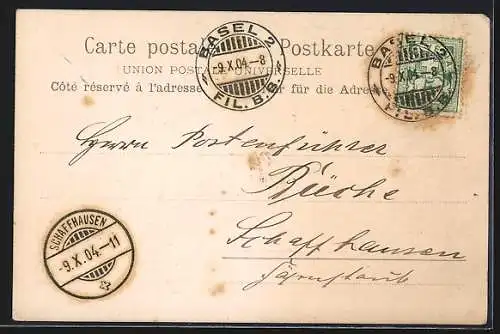 Carte postale Postkarte
BASEL 2
-9.X.04-8
FIL. B. S.
BASEL 2
-9.X.04-8
FIL. B. S.
UNION POSTALE UNIVERSELLE
Côté réservé à l'adresse für die Adresse
Herrn Postenführer
Büche
Schaffhausen
SCHAFFHAUSEN
-9.X.04.-11